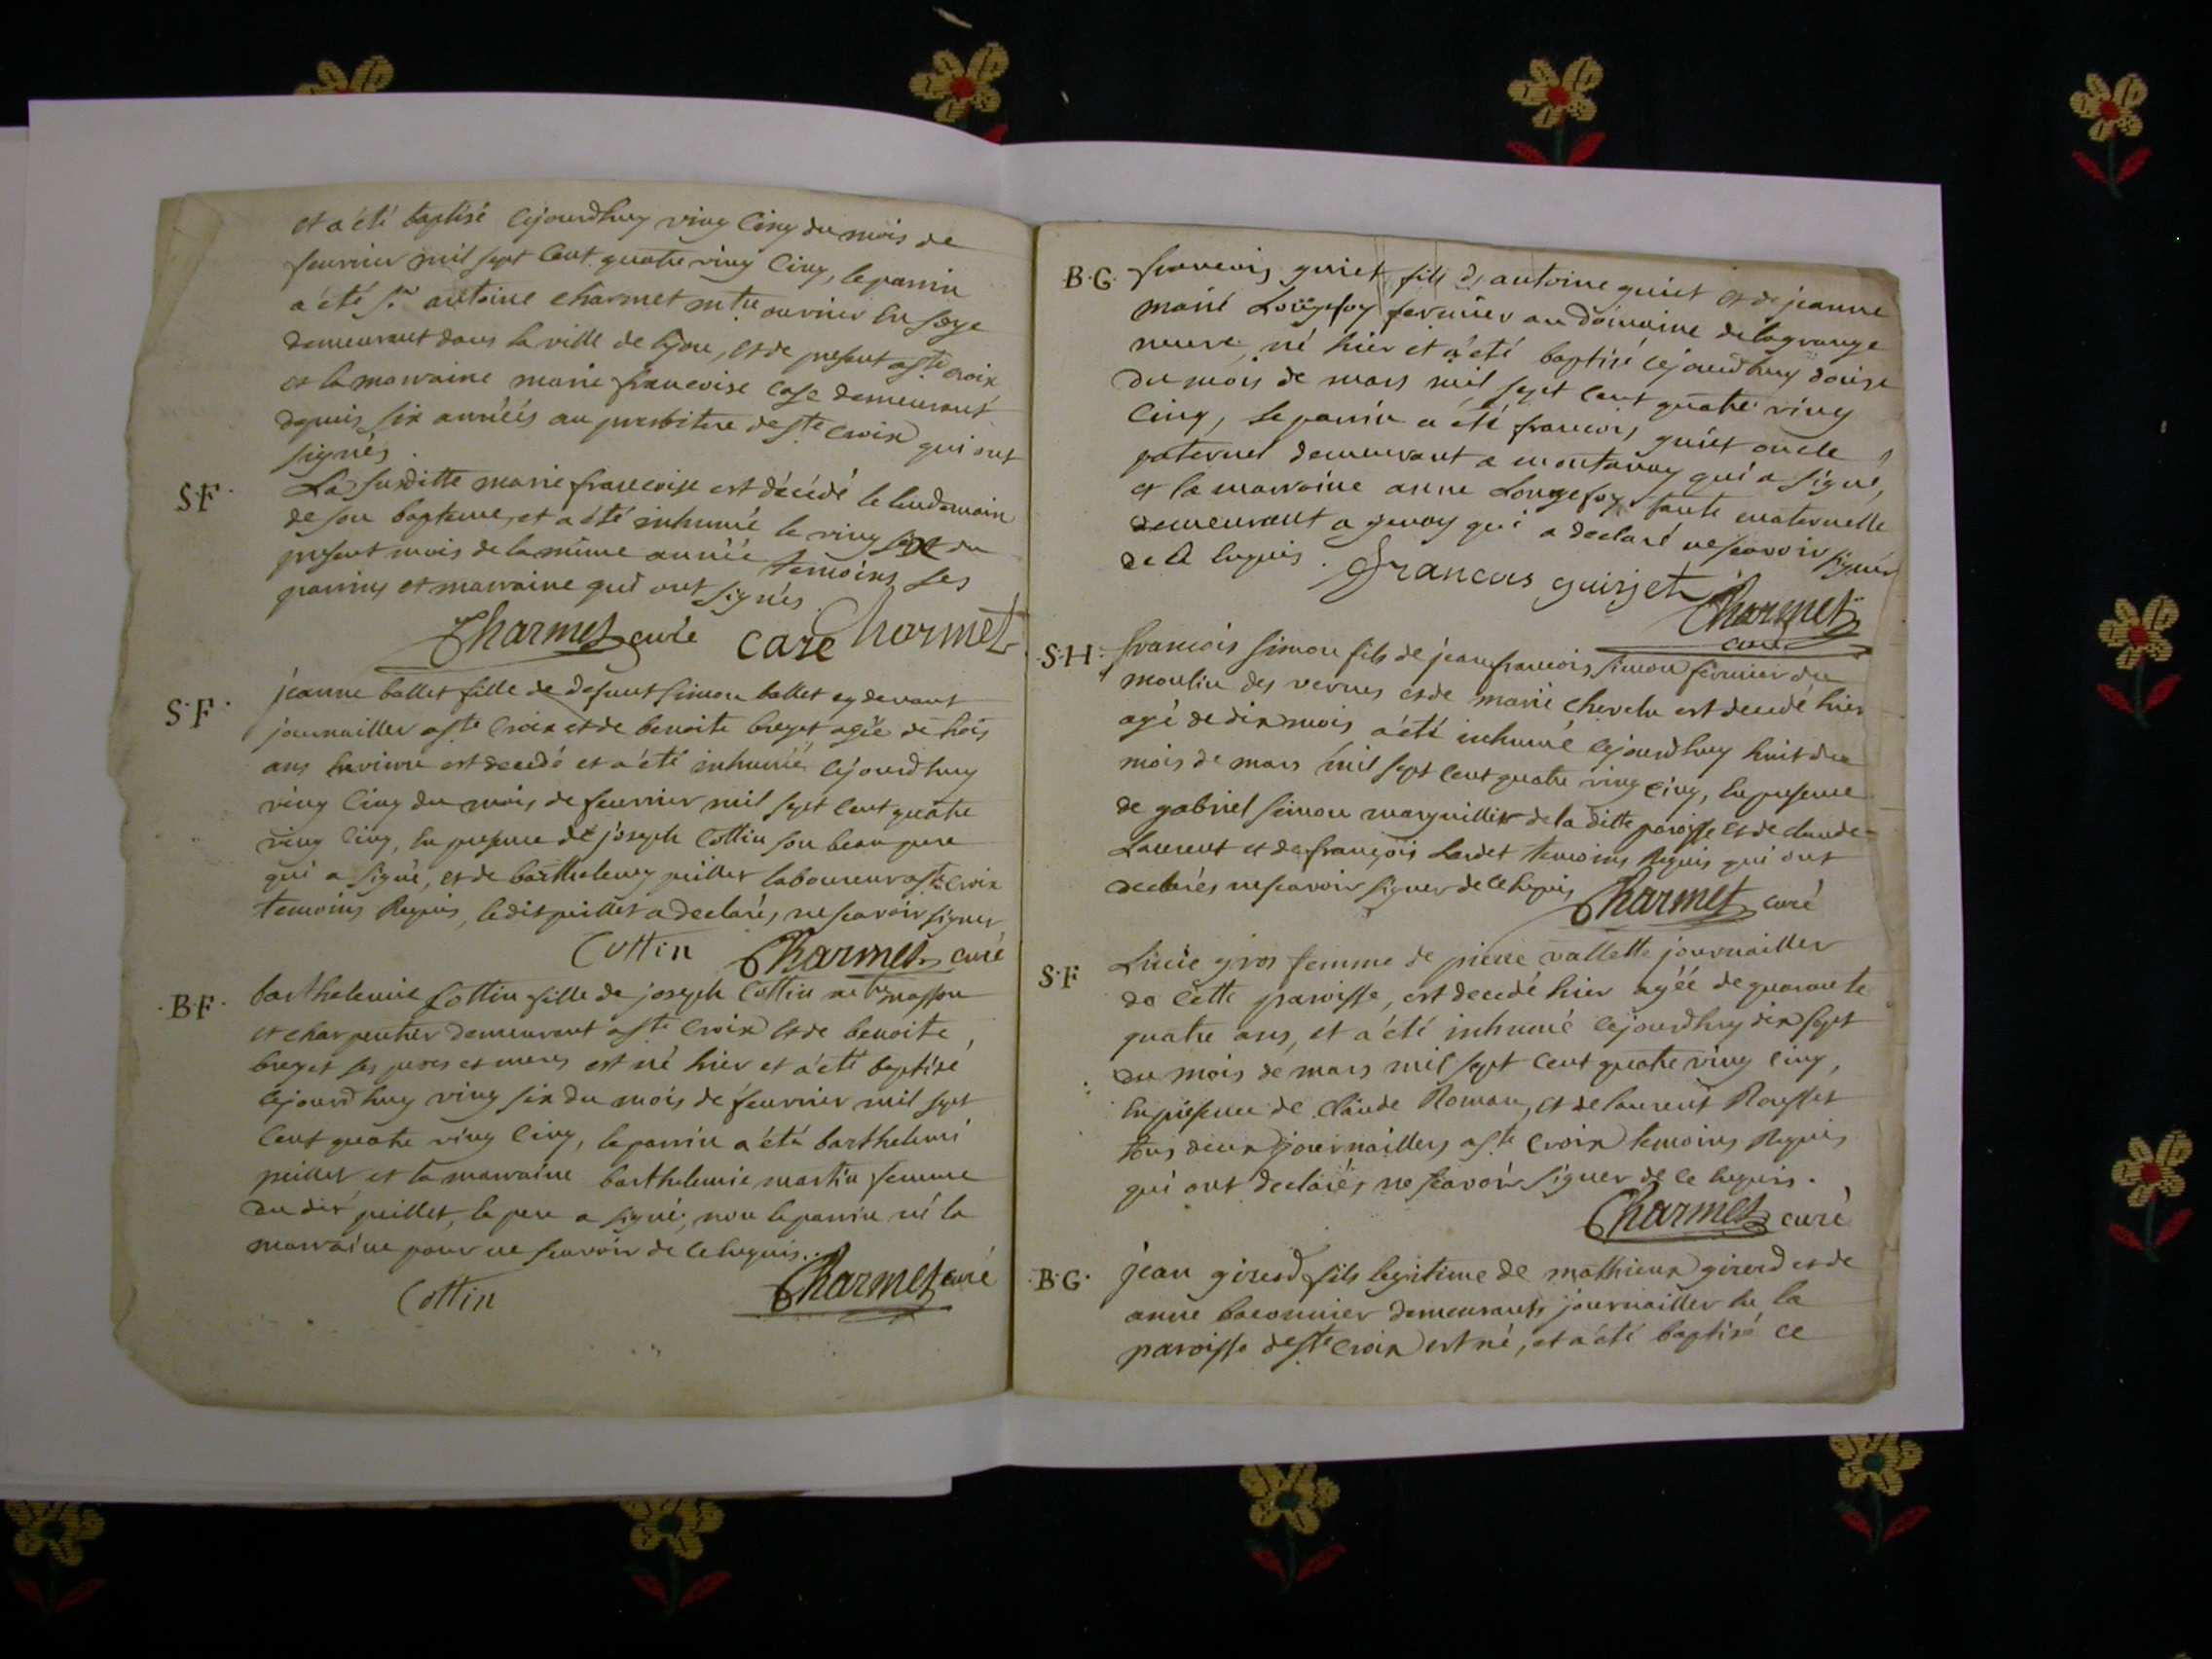 et a été baptisé cejourdhuy ving cinq du mois de
feuvrier mil sept cent quatre ving cinq, le parrin
a été sr antoine charmet mtre ouvrier en soye
demeurant dans la ville de lyon, et de present a ste croix
et la marraine marie francoise case demeurant
depuis six années au presbitere de ste croix qui ont
signés.
S.F. La susditte marie francoise est décédé le lendemain
de son bapteme, et a été inhumé le ving sept du
present mois de la même année temoins ses
parrins et marraine qui ont signés.
Charmet curé case Charmet
S.F. jeanne ballet fille de defunt simon ballet cy devant
journailler a ste croix et de benoite breget agée de trois
ans environ est decedé et a été inhumée cejourdhuy
ving cinq du mois de feuvrier mil sept cent quatre
ving cinq, en presence de joseph Cottin son beau pere
qui a signé, et de barthelemy peillet laboureur a ste croix
temoins requis, ledit peillet a declarés ne scavoir signer
Cottin Charmet curé
B.F. barthelemie Cottin fille de joseph Cottin mtre masson
et charpentier demeurant a ste croix et de benoite
breget ses peres et meres est né hier et a été baptisé
cejourdhuy ving six du mois de feuvrier mil sept
cent quatre ving cinq, le parrin a été barthelemi
peillet et la marraine barthelemie martin femme
du dit peillet, le pere a signé, non le parrin ni la
marraine pour ne scavoir de ce enquis.
Cottin Charmet curé
B.G. francois guiet fils d'antoine guiet et de jeanne
marie Longefoy fermier au domaine de lagrange
neuve, né hier et a été baptisé cejourdhuy douze
du mois de mars mil sept cent quatre ving
cinq, le parrin a été francois guiet oncle
paternel demeurant a montanay qui a signé,
et la marraine anne Longefoy tante maternelle
demeurant a genay qui a declaré ne scavoir signer
de ce enquis. francois guirjet Charmet
curé
S.H. francois simon fils de jean francois simon fermier du
moulin des vernes et de marie chevelu est decedé hier
agé de dix mois, a été inhumé cejourdhuy huit du
mois de mars mil sept cent quatre ving cinq, en presence
de gabriel simon marguillier de la ditte paroisse et de claude
Laurent et de françois Lardet temoins requis qui ont
declarés ne scavoir signer de ce enquis Charmet curé
S.F Lucie gros femme de pierre vallette journailler
de cette paroisse, est decedé hier agée de quarante
quatre ans, et a été inhumé cejourdhuy dix sept
du mois de mars mil sept cent quatre ving cinq,
en presence de claude Roman, et de laurent Rousset
tous deux journaillers a ste croix temoins requis
qui ont declarés ne scavoir signer de ce enquis.
Charmet curé
B.G. jean girerd fils legitime de mathieux girerd et de
anne baconnier demeurants journailler en la
paroisse de ste croix est né, et a été baptisé ce